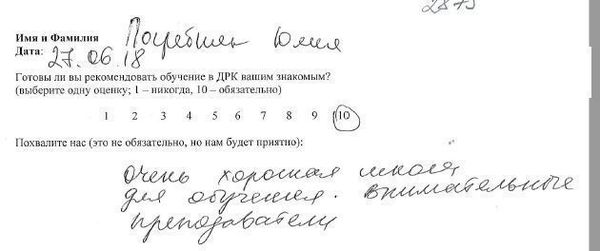 2875
Имя и Фамилия Погребняк Юлия
Дата: 27.06.18
Готовы ли вы рекомендовать обучение в ДРК вашим знакомым?
(выберите одну оценку; 1 – никогда, 10 – обязательно)
1 2 3 4 5 6 7 8 9 10
Похвалите нас (это не обязательно, но нам будет приятно):
очень хорошая школа
для обучения. Внимательные
преподаватели